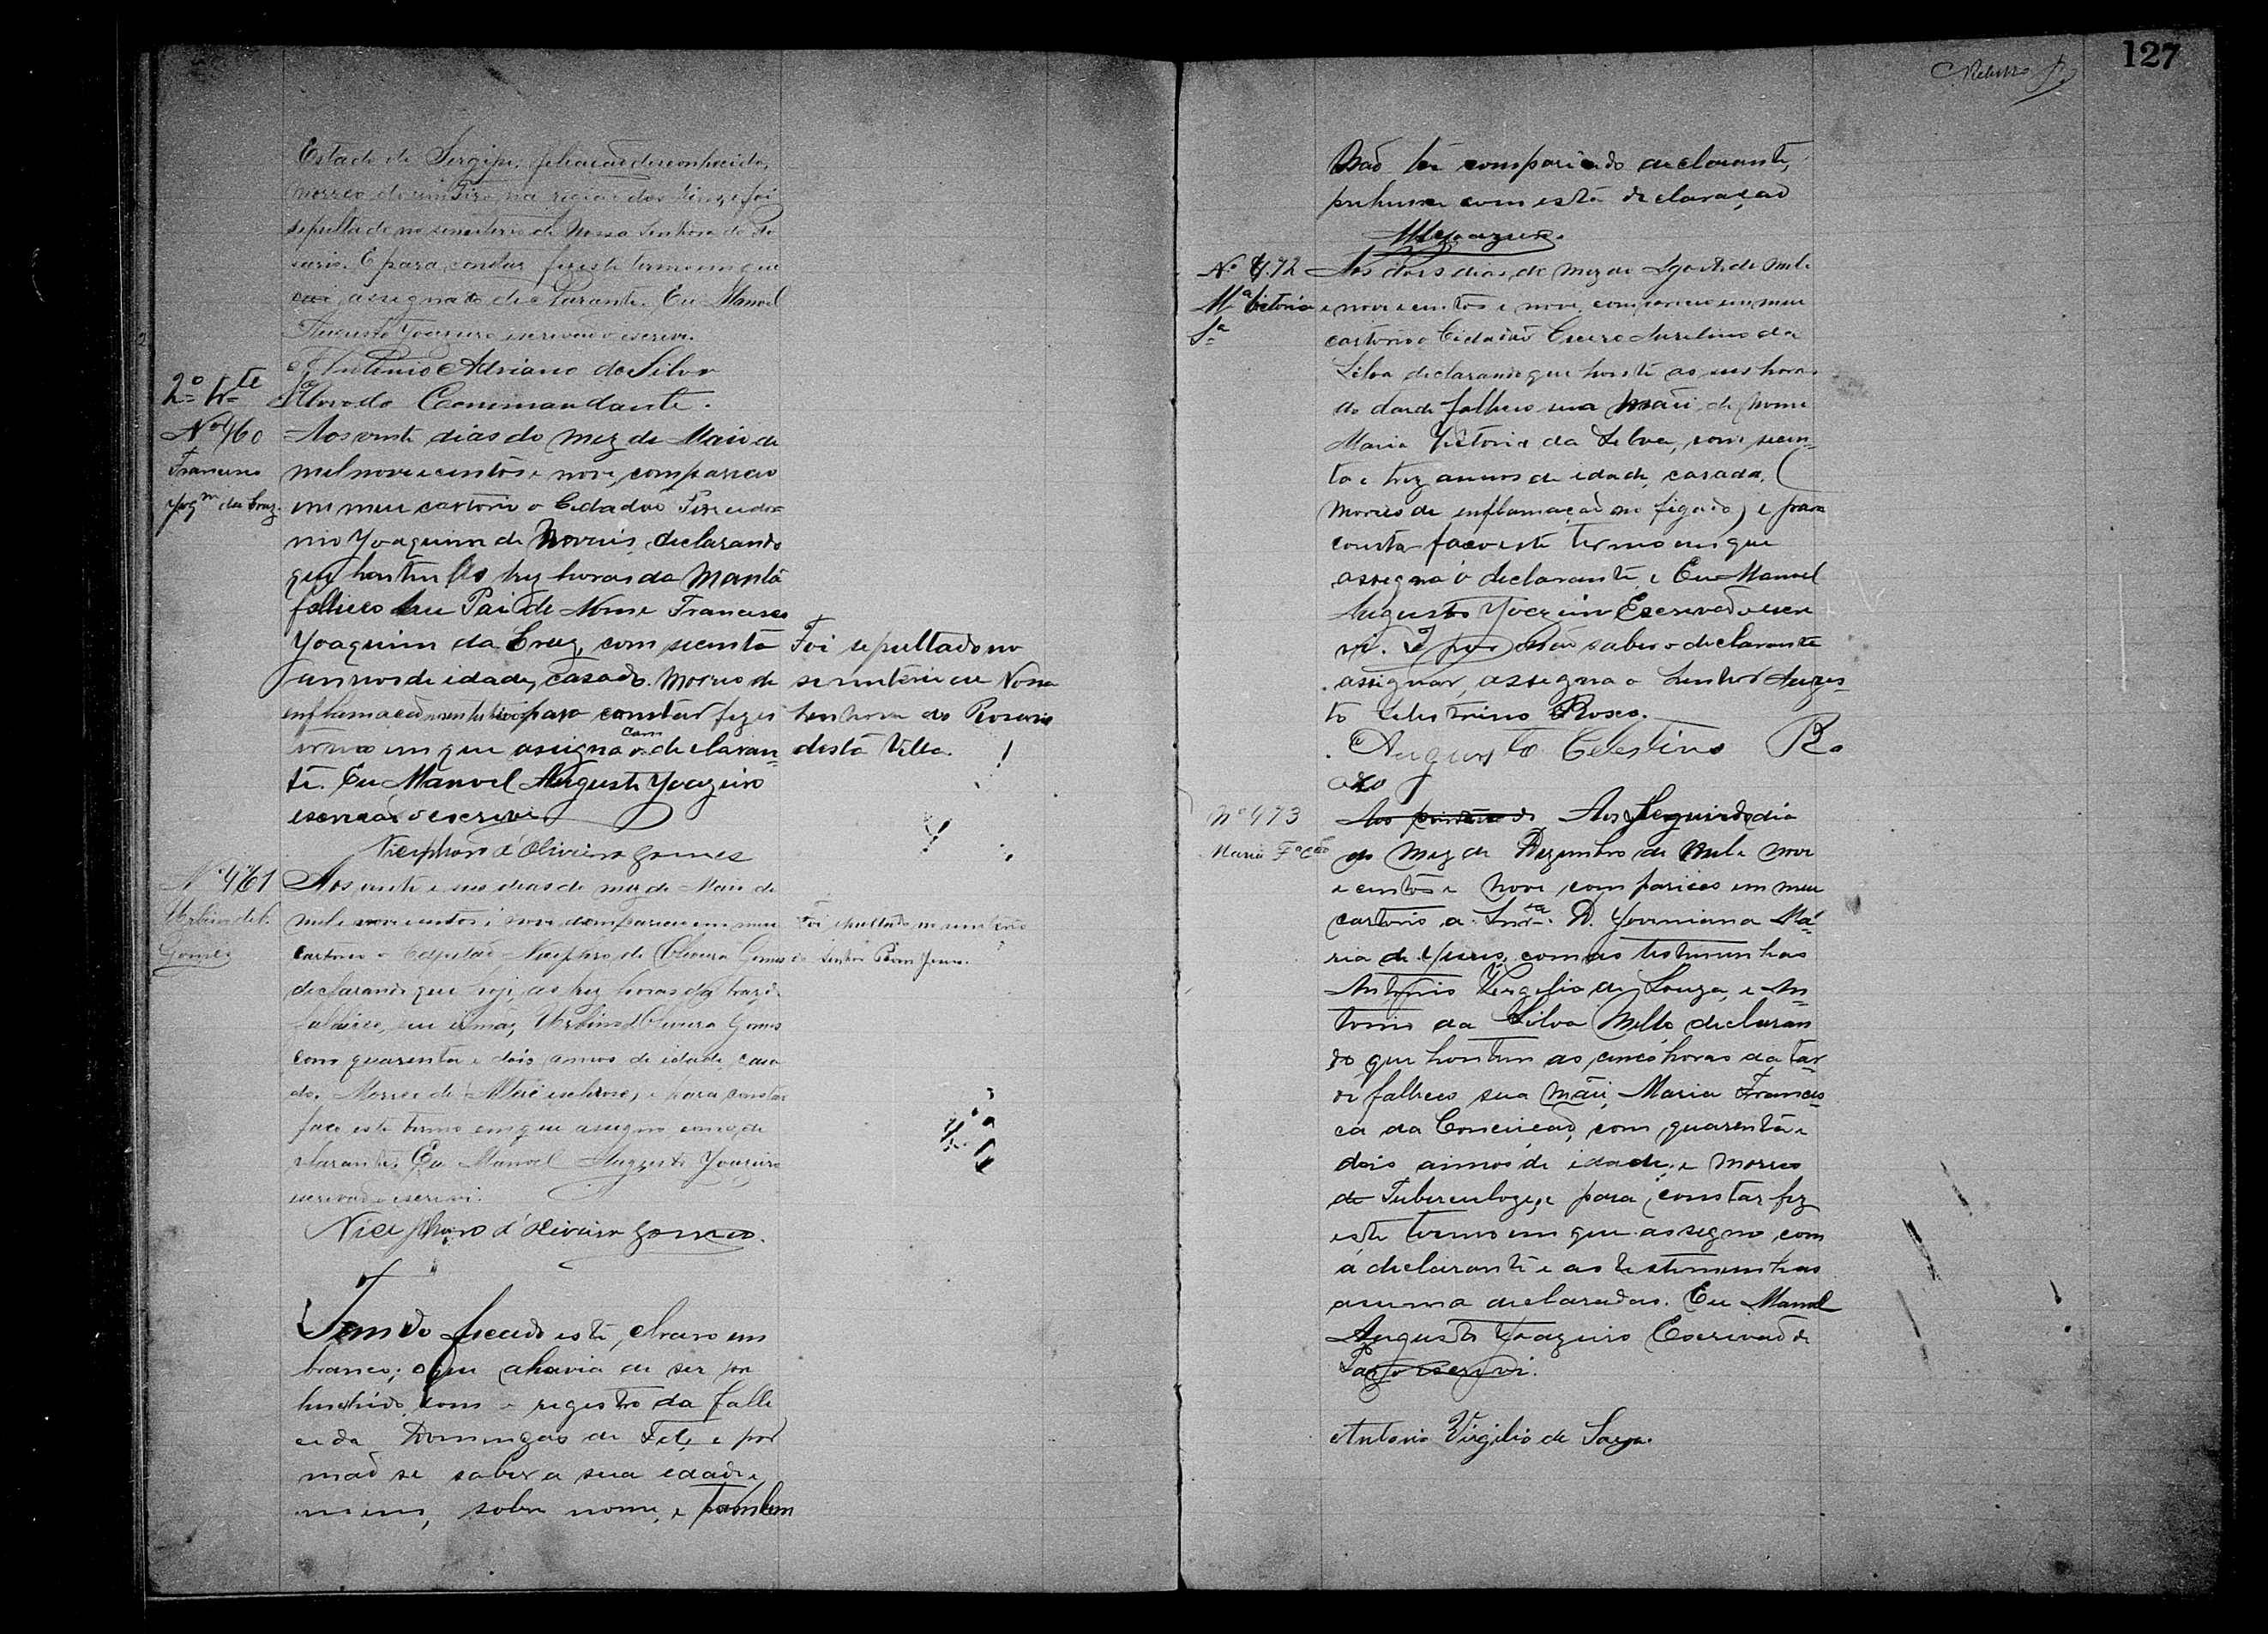 Estado de Sergipe, filiação desconhecida,
morreo de um tiro, na região dos rins, e foi
sepultado no semiterio de Nossa Senhora do Ro
sario. E para constar fiz este termo em que
assigna o declarante. Eu Manoel
Augusto Joazeiro escrivão o escrevi.
Antonio Adriano da Silva
2º Commandante.
Nº 460
Francisco
Joqm da Cruz.
Aos vinte dias do mez de Maio de
mil nove centos e nove, compareceo
em meu cartorio o Cidadão
nio Joaquim de Moraes, declarando
que hontem as trez horas da manhã
falleceo seu Pai de Nome Francisco
Joaquim da Cruz, com secenta
annos de idade, casado. Morreo de
inflamação para constar fiz es
termo em que assigna com o declaran
te. Eu Manoel Augusto Joazeiro
escrivão o escrevi
Foi sepultado no
semiterio de Nossa
Senhora do Rosario
desta Villa.
Nicephoro d'Oliveira Gomes
Nº 461
Gomes
Aos vinte e seis dias do mez de Maio de
mil e nove centos e nove compareceu em meu
cartorio o Capitão Nicephoro de Oliveira Gomes
declarando que hoje, as trez horas da tarde
falleceo, seu irmão, Urbino d'Oliveira Gomes
com quarenta e dois annos de idade, casa
do. Morreo de e para constar
faço este termo em que assigno com o de
clarante. Eu Manoel Augusto Joazeiro
escrivão o escrevi.
Foi sepultado no semiterio
do Senhor Bom Jesus.
Nicephoro d'Oliveira Gomes.
Tendo ficado este claro em
branco; o que a havia de ser pre
henchido com o registro da falle
cida Domingas de Tal, e por
não se saber a sua edade, e
nem, sobre nome, e tambem
127
Não ter comparecido declarante,
prehenxi com esta declaração
MAJoazeiro.
Nº 472
Mª Victoria
Sª
Aos dois dias do mez de Agosto de mil
e nove centos e nove, compareceo em meu
cartorio o Cidadão Cicero Aurelino da
Silva declarando que honte as seis horas
da tarde falleceo sua mãi, de nome
Maria Victoria da Silva, com secen
ta e trez annos de idade, casada,
Morreo de inflamação no figado, e para
constar faço este termo em que
assigna o declarante, e Eu Manoel
Augusto Joazeiro Escrivão o escre
vi. E por não saber o declarante
assignar, assigna o Senhor Augus
to Celestrino Roxo.
Augusto Celestino Ro
xo
Nº 473
Maria Fca Cão
Aos Segundo dia
do mez de Dezembro de mil e nove
e centos e nove, compareceo em meu
cartorio a Snra. D. Joviniana Ma
ria de Jesus, com as testimunhas
Antonio Vergilio de Souza, e An
tonio da Silva Mello, declaran
do que hontem as cinco horas da tar
de falleceo sua mãi, Maria Francis
ca da Conceicão, com quarenta e
dois annos de idade, e morreo
de Tuberculoze, e para constar fiz
este termo em que assigno com
a declarante e as testimunhas
assima declaradas. Eu Manoel
Augusto Joazeiro Escrivão de
Paz o escrevi.
Antonio Virgilio de Souza.